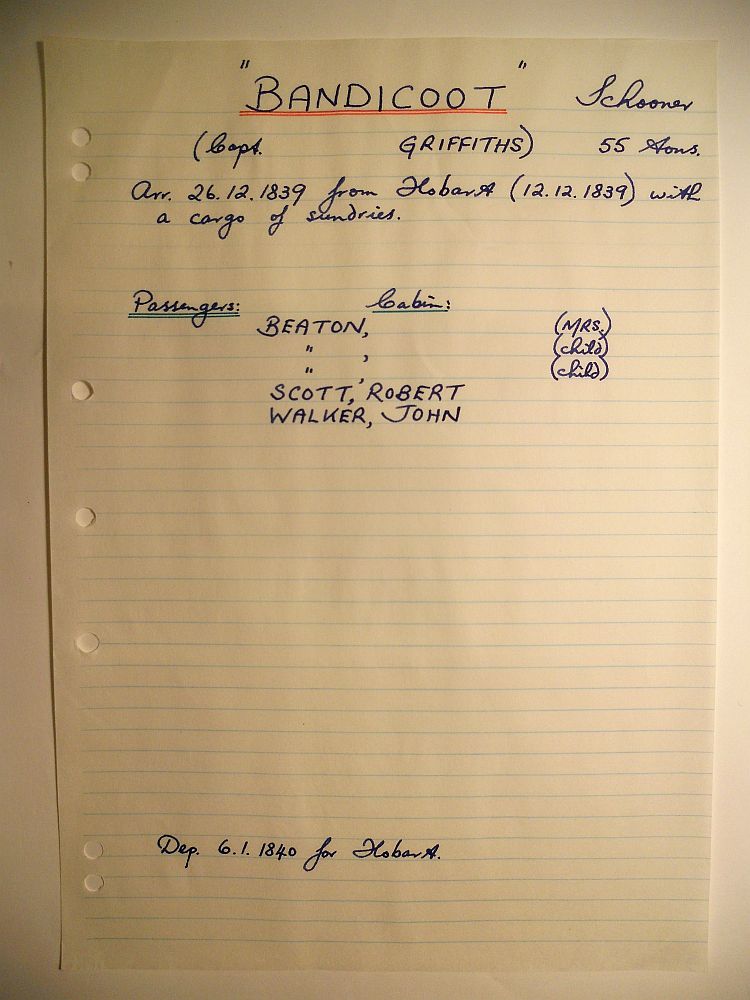 "BANDICOOT" Schooner
(Capt. GRIFFITHS) 55 tons.
Arr. 26.12.1839 from Hobart (12.12.1839) with
a cargo of sundries.
Passengers: Cabin:
BEATON, (MRS.)
" , (child)
" , (child)
SCOTT, ROBERT
WALKER, JOHN
Dep. 6.1.1840 for Hobart.